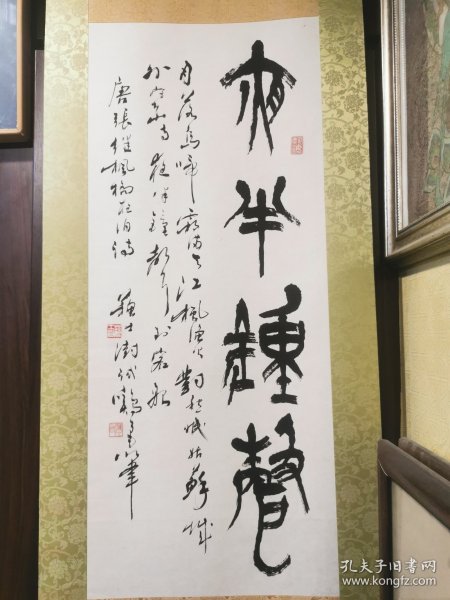 夜半鐘聲
月落烏啼霜滿天江楓漁火對愁眠姑蘇城
外寒山寺夜半鐘聲到客船
唐張繼楓橋夜泊詩
孔夫子旧书网
www.kongfz.com